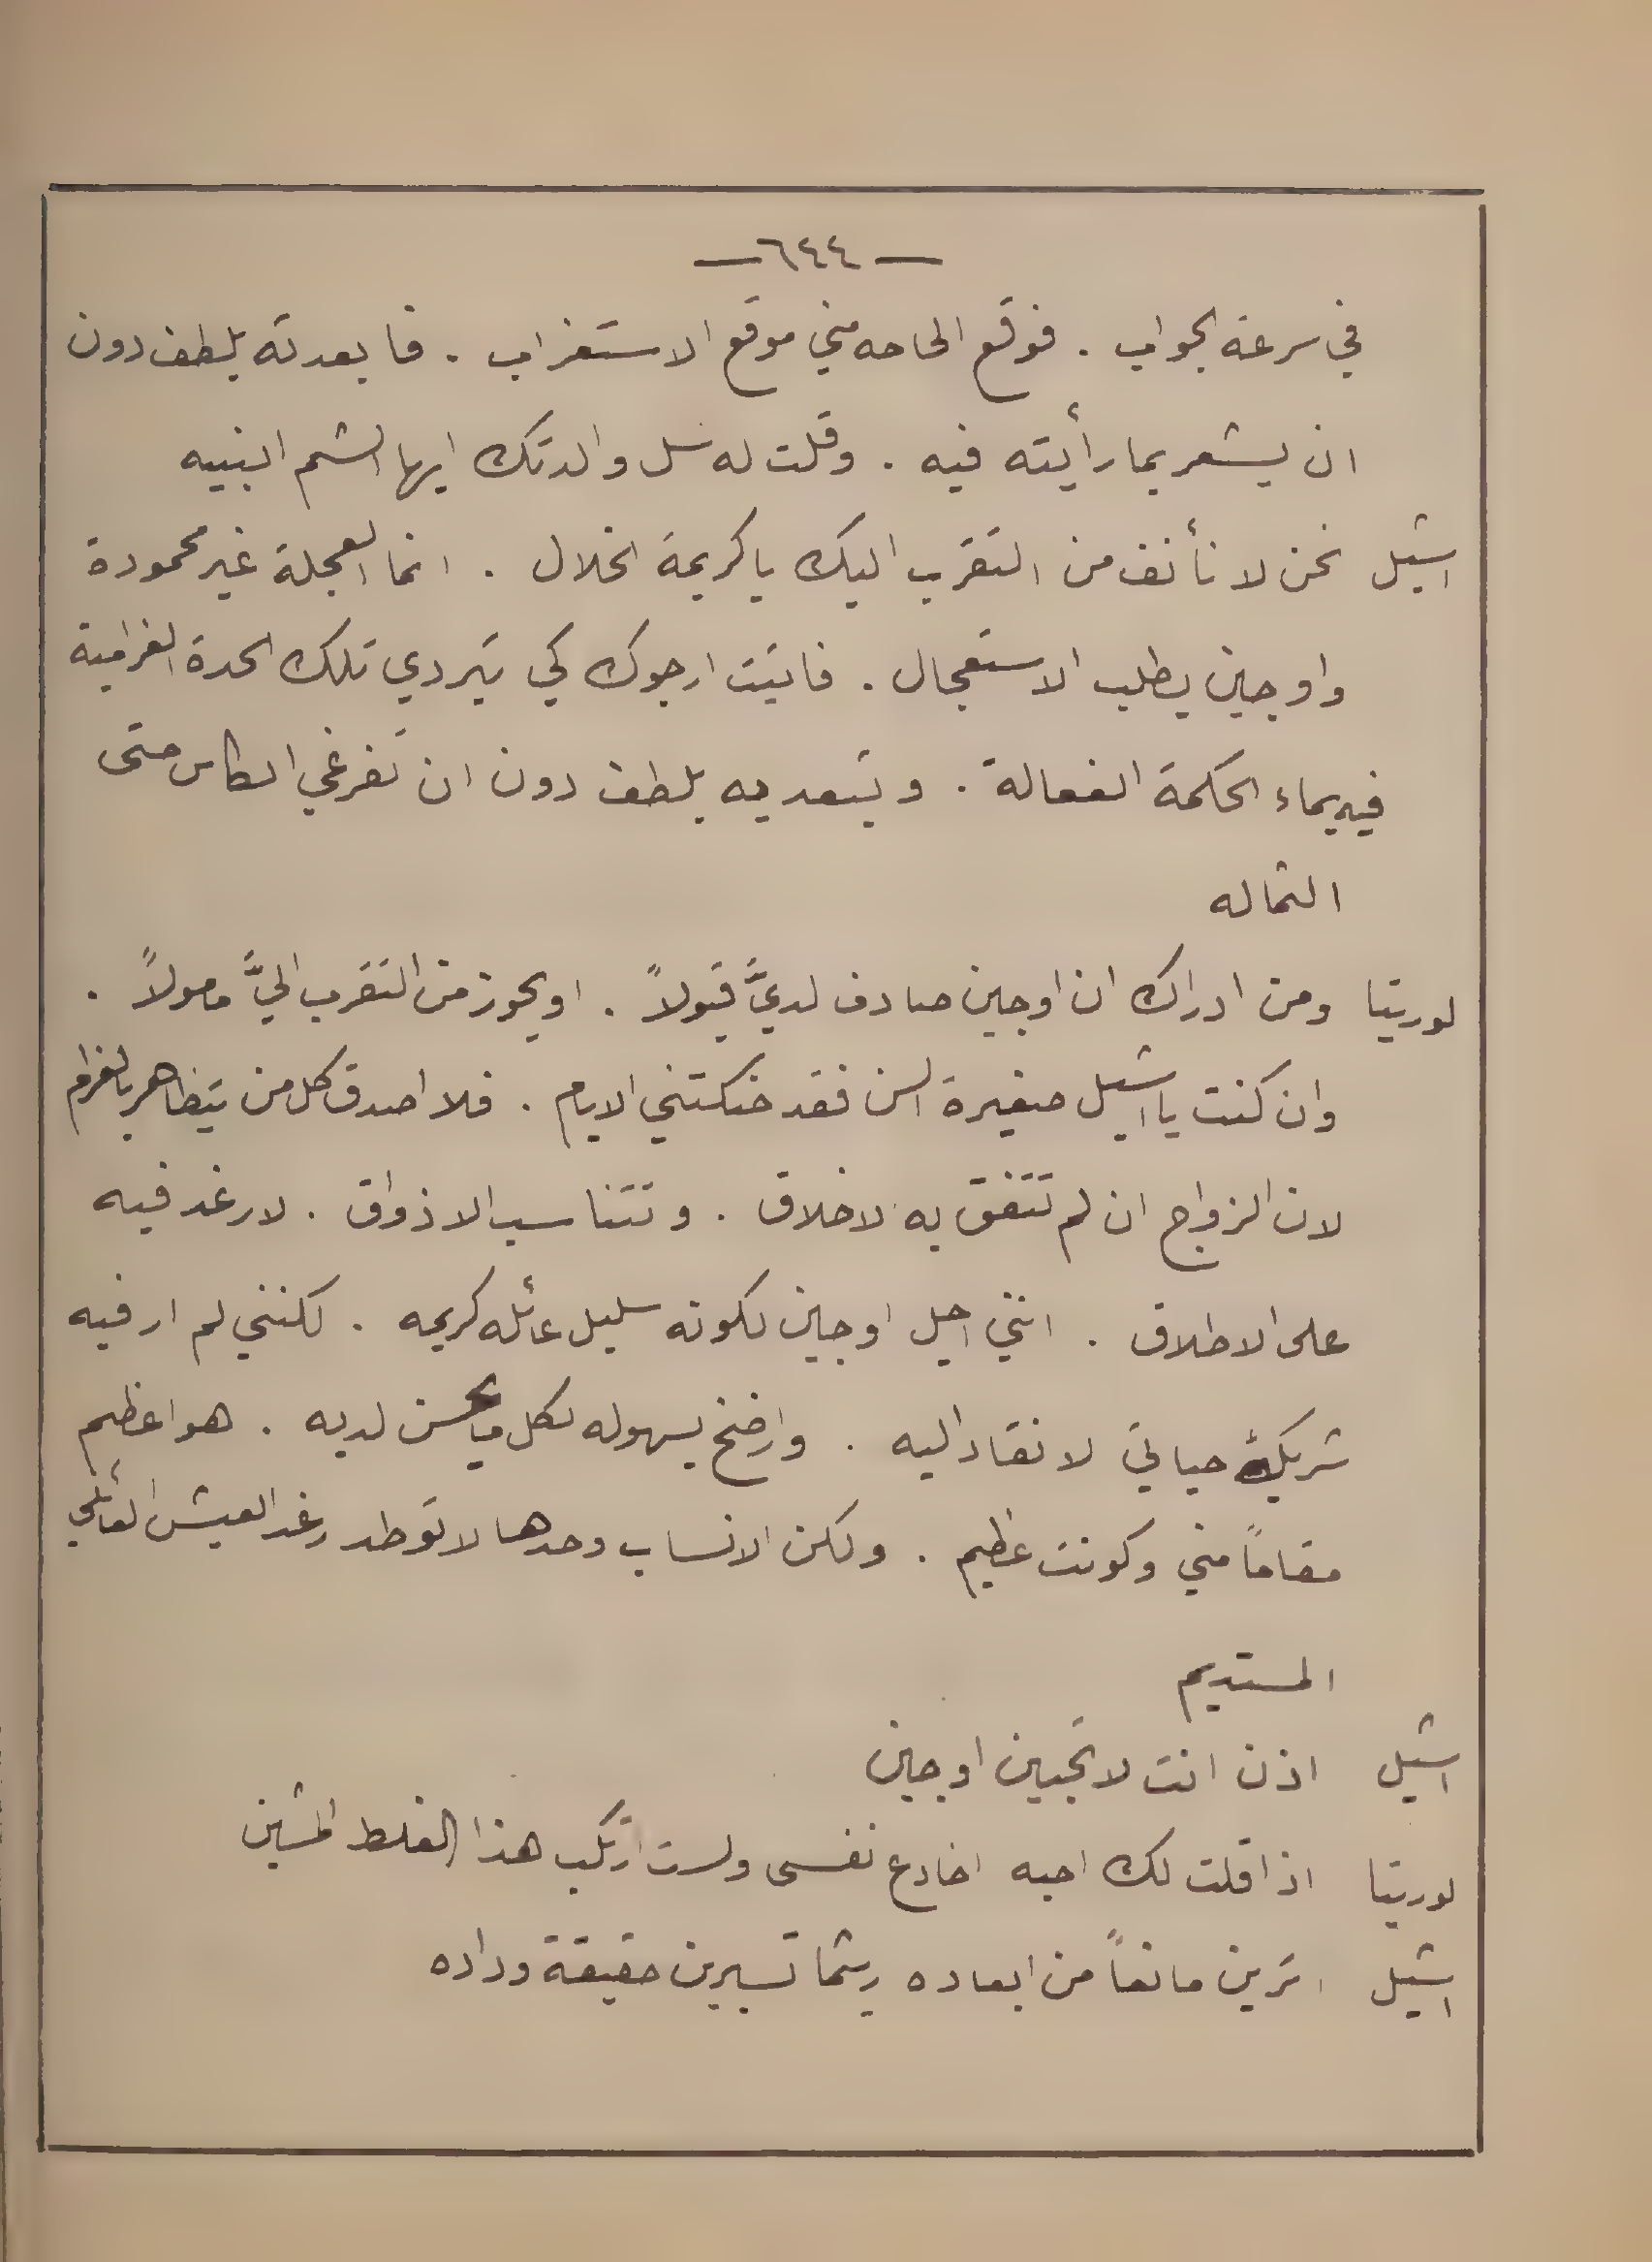 — ٦٤٤ —
في سرعة الجواب . فوقع الحاحه مني موقع الاستغراب . فابعدته بلطف دون
ان يشعر بما رأيته فيه . وقلت له سل والدتك ايها الشهم النبيه
اشيل نحن لا نأنف من التقرب اليك يا كريمة الخلال . انما العجلة غير محمودة
واوجين يطلب الاستعجال . فاتيت ارجوك كي تبردي تلك الحدة الغرامية
فيه بماء الحكمة الفعالة . وتبعديه بلطف دون ان تفرغي الكاس حتى
الثماله
لوريتا ومن ادراك ان اوجين صادف لديَّ قبولاً . او يحوز من التقرب اليَّ مامولاً .
وان كنت يا اشيل صغيرة السن فقد حنكتني الايام . فلا اصدق كل من يتظاهر بالغرام
لان الزواج ان لم تتفق به الاخلاق . وتتناسب الاذواق . لا رغد فيه
على الاطلاق . انني اجل اوجين لكونه سليل عائله كريمه . لكنني لم ار فيه
شريك حياتي لانقاد اليه . وارضخ بسهوله لكل ما يحسن لديه . هو اعظم
مقاماً مني وكونت عظيم . ولكن الانساب وحدها لا توطد رغد العيش العائلي
المستديم
اشيل اذن انت لا تحبين اوجين
لوريتا اذا قلت لك احبه اخادع نفسى ولست ارتكب هذا الغلط المشين
اشيل اترين مانعاً من ابعاده ريثما تسبرين حقيقة وداده